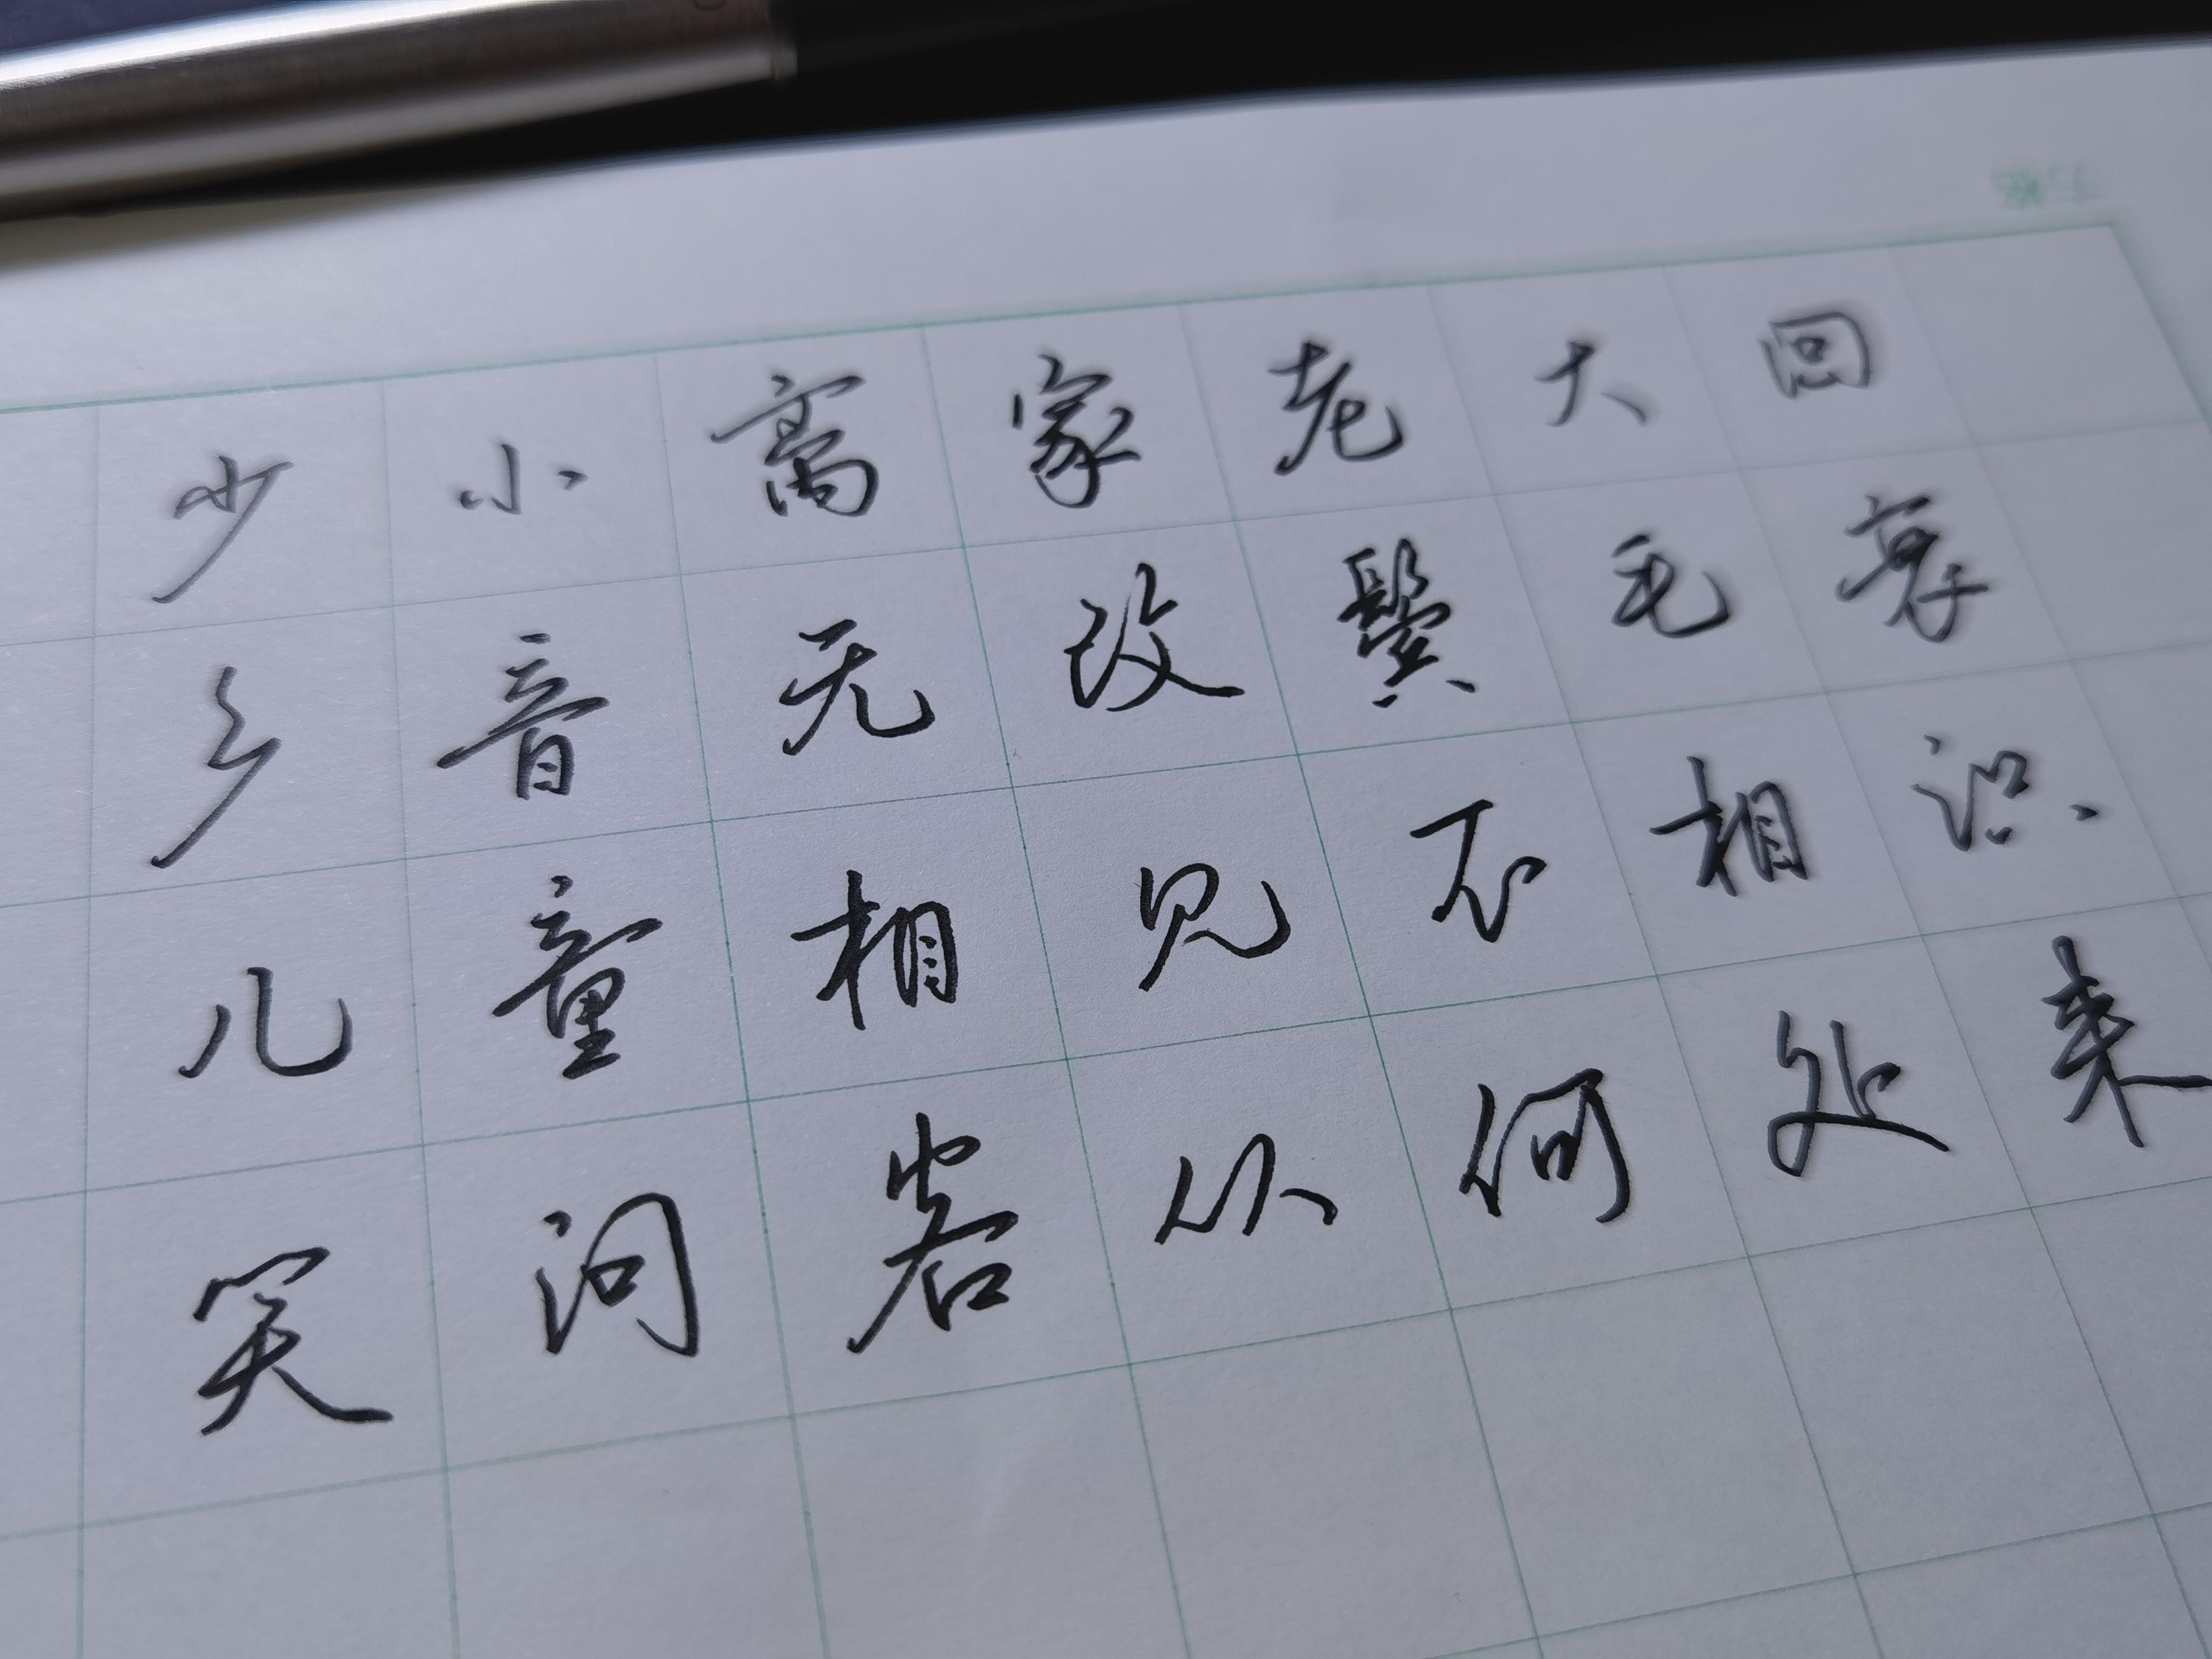 少小离家老大回
乡音无改鬓毛衰
儿童相见不相识
笑问客从何处来